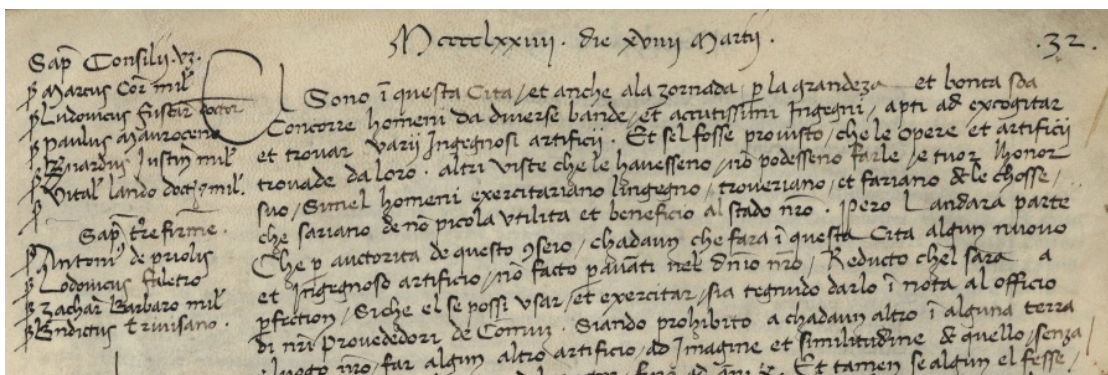 Mcccclxxiiii. die xviiii Martii.
.32.
Sap Consilii. vz.
p Marcus Cor mil
p Ludovicus fuscar doctor
p paulus Mauroceno
p Bnardus Justin mil
p Vital lando doct mil.
p
Sap tre firme.
p Antoni de priolis
p Lodovicus faletro
p Zachar Barbaro mil
p Bndictus trivisano.
El Sono i questa Cita, et anche ala zornada p la grandeza et bonta soa
Concorre homeni da diverse bande, et accutissimi Ingegni, apti ad excogitar
et trovar varii Ingegnosi artificii. Et sel fosse provisto, che le opere et artificii
trovade da loro. altri viste che le havesseno, nō podesseno farle, e tuor lhonor
suo, Simel homeni exercitariano lingegno, troveriano, et fariano de le chosse,
che sariano de nō picola utilita et beneficio al stado nro. Pero L andara parte
Che p auctorita de questo 9seio, chadaun che fara i questa Cita algun nuovo
et Ingegnoso artificio, nō facto p avanti nel dnio nro, Reducto chel sara a
pfection, Siche el se possi usar, et exercitar, sia tegnudo darlo i nota al officio
di nri provededori de Comun. Siando prohibito a chadaun altro i alguna terra
luogo nro, far algun altro artificio, ad Imagine et similitudine de quello, senza
fino ad ani x. Et tamen se algun el fesse,